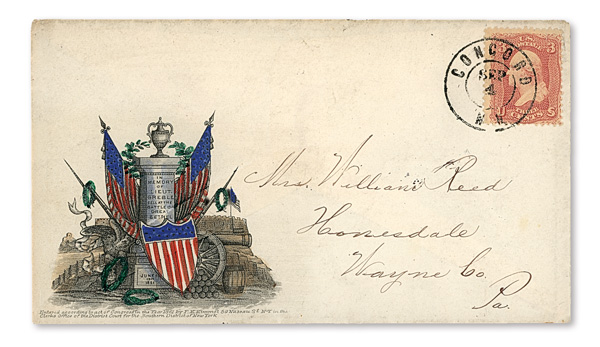 CONCORD
SEP
4
N.H.
3 3
U.S.
POSTAGE
CENTS
U S
IN
MEMORY
OF
LIEUT.
GREBLE
FELL AT THE
BATTLE OF
GREAT
BETHEL
JUNE
1861
Mrs. William Reed
Honesdale
Wayne Co.
Pa.
Entered according to act of Congress in the Year 1861 by F. K. Kimmel 59 Nassau St. N.Y. in the
Clerks Office of the District Court for the Southern District of New York